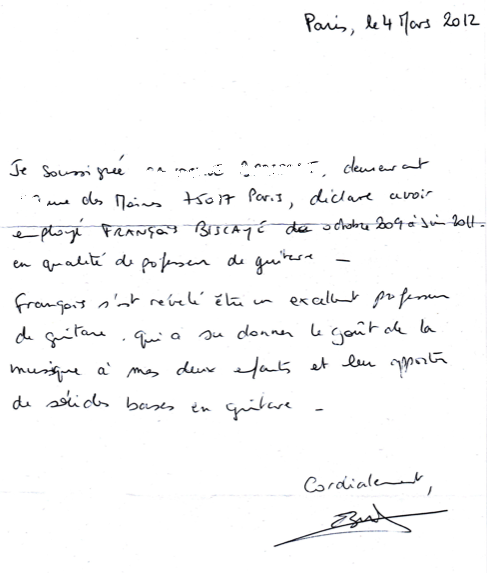 Paris, le 4 Mars 2012
Je soussignée demeurant
rue des Moines 75017 Paris, déclare avoir
employé FRANÇOIS BISCAYÉ de octobre 2009 à Juin 2011.
en qualité de professeur de guitare –
François s'est révélé être un excellent professeur
de guitare. qui a su donner le goût de la
musique à mes deux enfants et leur apporter
de solides bases en guitare –
Cordialement,